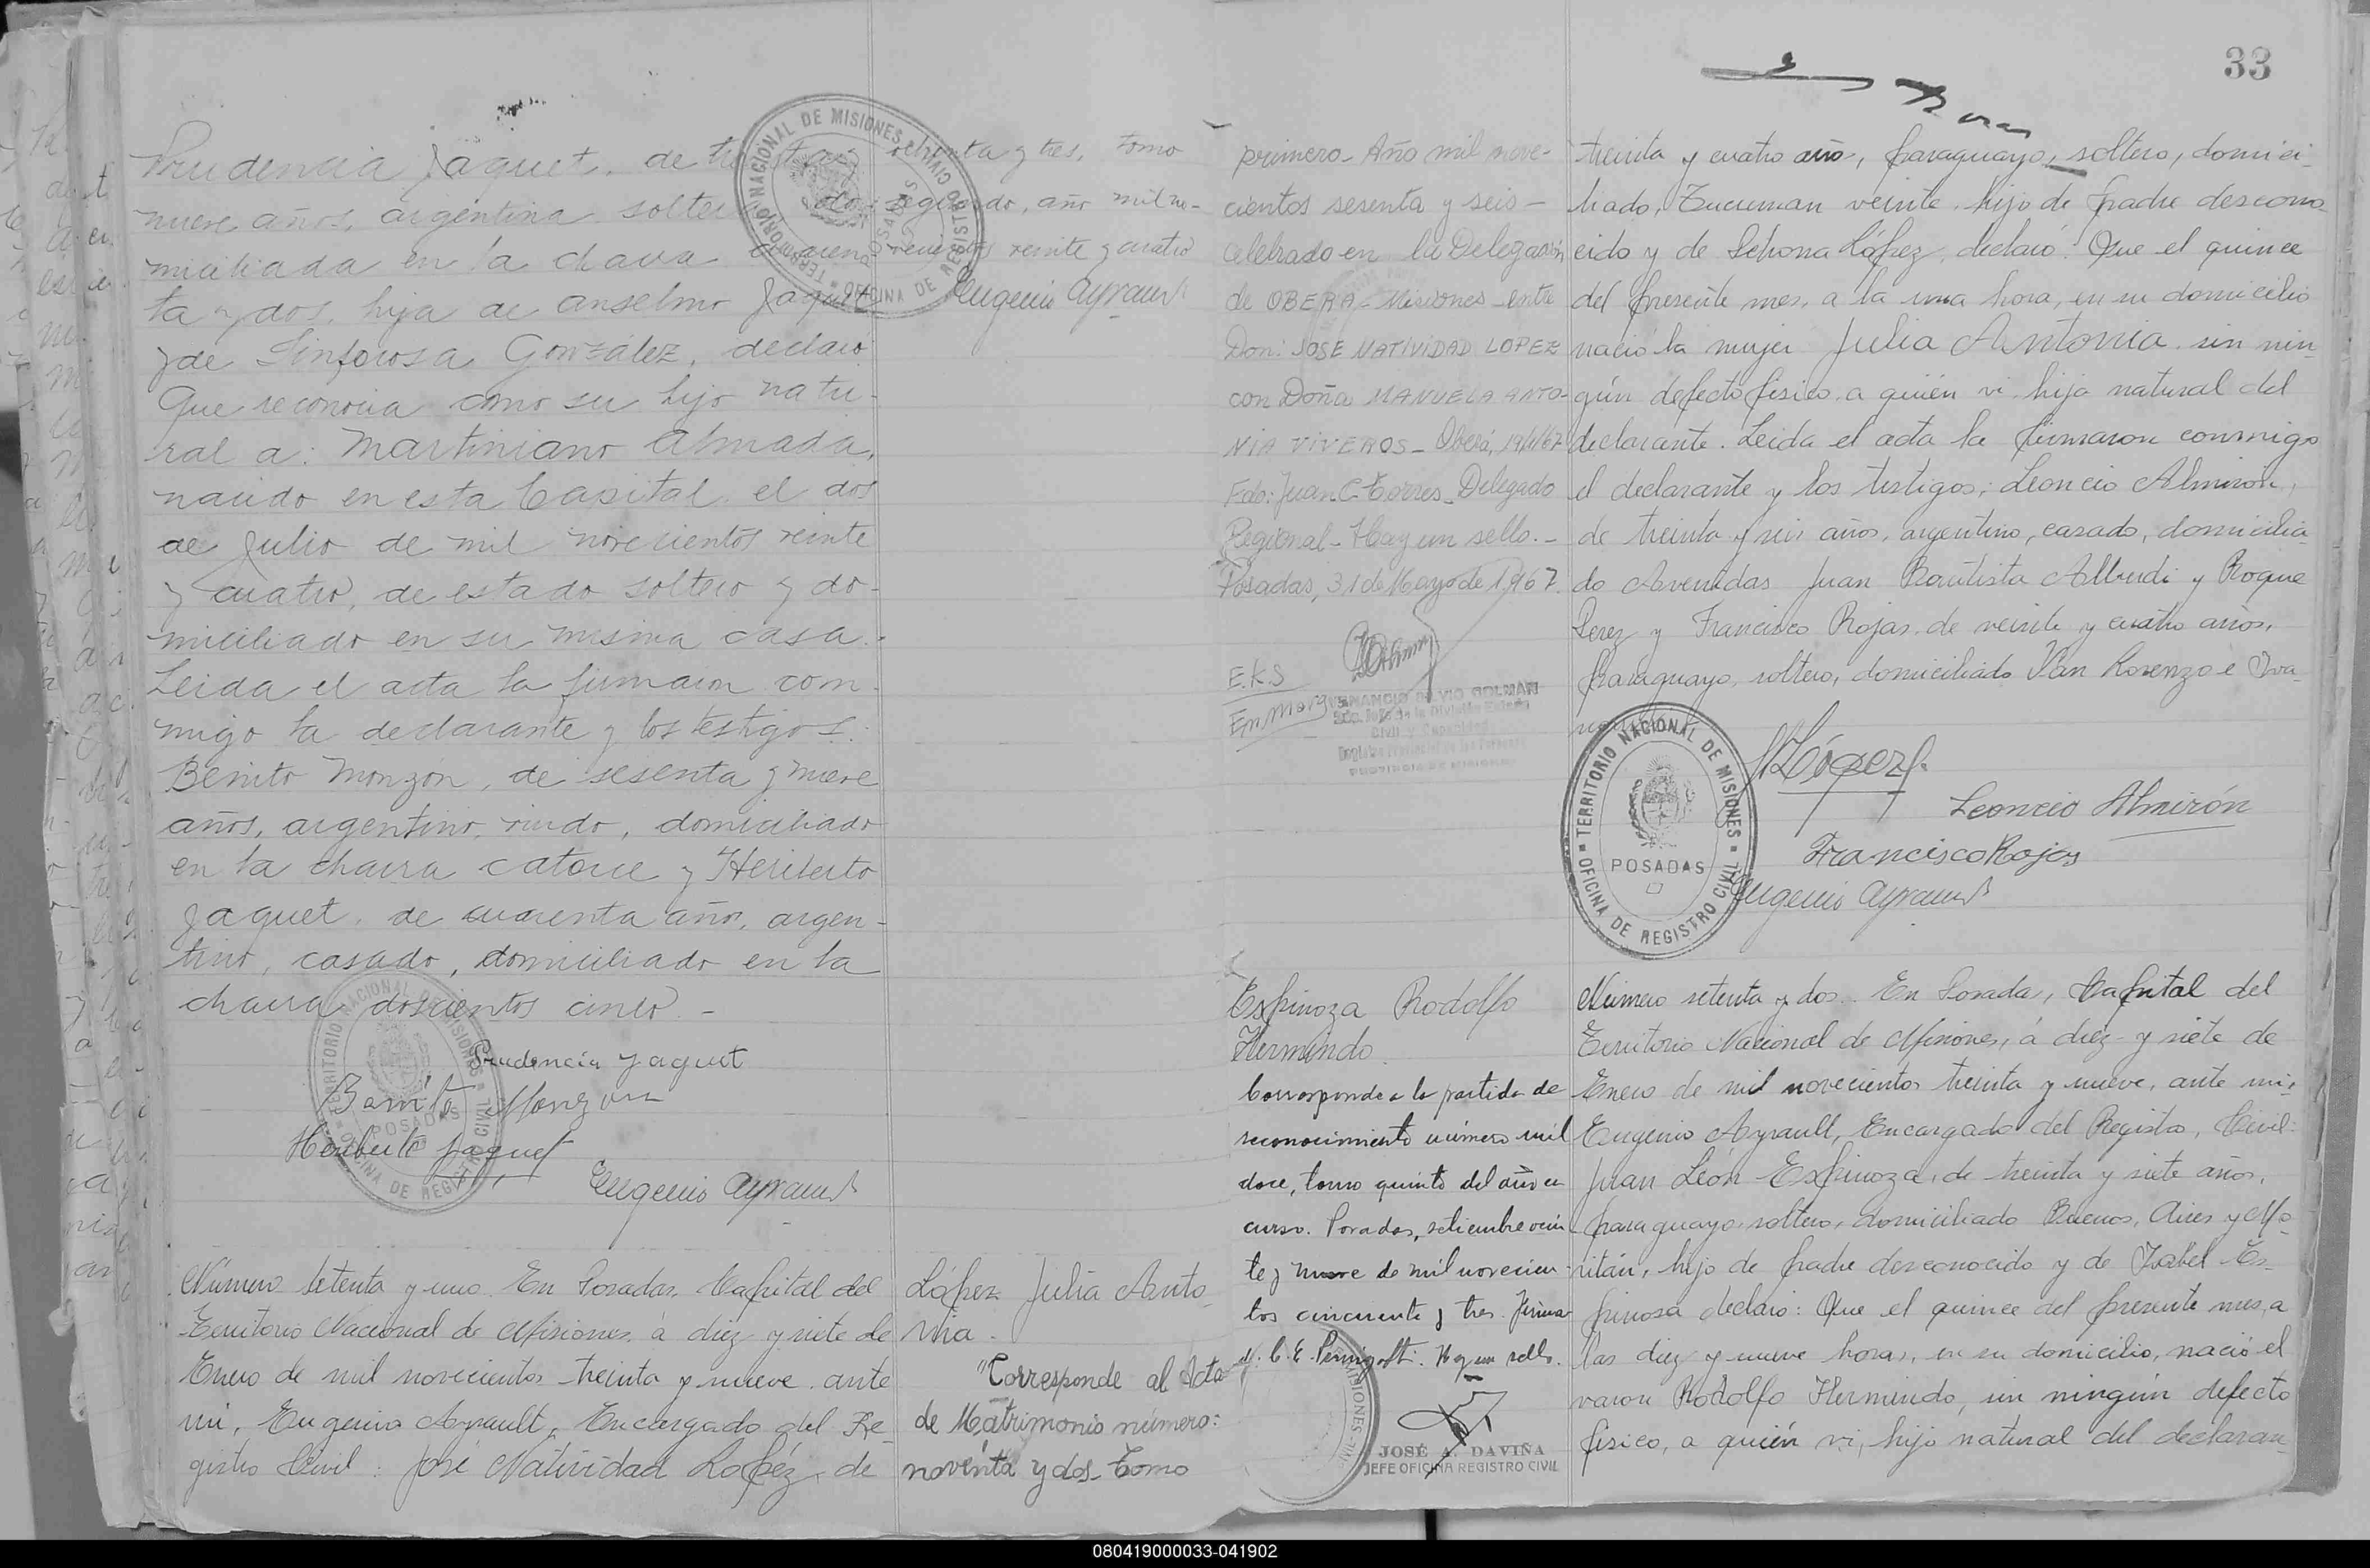 Prudencia Jaquet, de treinta y
nueve años, argentina, soltera, do-
miciliada en la chacra
ta y dos, hija de Anselmo Jaquet
y de Sinforosa González, declaró:
Que reconocía como su hijo natu-
ral a: Martiniano Almada,
nacido en esta Capital el dos
de Julio de mil novecientos veinte
y cuatro, de estado soltero y do-
miciliado en su misma casa.-
Leida el acta la firmaron con-
migo la declarante y los testigos:
Benito Monzón, de sesenta y nueve
años, argentino, viudo, domiciliado
en la chacra catorce y Heriberto
Jaquet, de cuarenta años, argen-
tino, casado, domiciliado en la
chacra doscientos cinco.-
Prudencia Jaquet
Benito Monzon
Heriberto Jaquet
Eugenio Ayrault
TERRITORIO NACIONAL DE MISIONES
OFICINA DE REGISTRO CIVIL
POSADAS
y tres, tomo
segundo, año mil no-
vecientos veinte y cuatro
Eugenio Ayrault
TERRITORIO NACIONAL DE MISIONES
OFICINA DE REGISTRO CIVIL
POSADAS
Número setenta y uno. En Posadas, Capital del
Territorio Nacional de Misiones, á diez y siete de
Enero de mil novecientos treinta y nueve, ante
mi, Eugenio Ayrault, Encargado del Re-
gistro Civil: José Natividad López, de
López Julia Anto-
nia.
"Corresponde al Acta
de Matrimonio número:
noventa y dos- Tomo
33
primero- Año mil nove-
cientos sesenta y seis-
celebrado en la Delegación
de OBERA- Misiones- entre
Don: JOSE NATIVIDAD LOPEZ
con Doña MANUELA ANTO-
NIA VIVEROS- Oberá, 19/1/67
Fdo: Juan C. Torres- Delegado
Regional- Hay un sello.-
Posadas, 31 de Mayo de 1967.
E.K.S
treinta y cuatro año, paraguayo, soltero, domici-
liado, Tucuman veinte, hijo de padre descono-
cido y de López, declaró: Que el quince
del presente mes, a la una hora, en su domicilio
nació la mujer Julia Antonia, sin nin-
gún defecto físico, a quién vi, hija natural del
declarante. Leida el acta la firmaron conmigo
el declarante y los testigos: Leoncio Almiron,
de treinta y seis años, argentino, casado, domicilia-
do Avenidas Juan Bautista Alberdi y Roque
Perez y Francisco Rojas, de veinte y cuatro años,
paraguayo, soltero, domiciliado San Lorenzo e Iva-
López
Leoncio Almirón
Francisco Rojas
Eugenio Ayrault
TERRITORIO NACIONAL DE MISIONES
OFICINA DE REGISTRO CIVIL
POSADAS
Espinoza Rodolfo
Hermindo.
Corresponde a la partida de
reconocimiento número mil
doce, tomo quinto del año en
curso. Posadas, setiembre vein
te y nueve de mil novecien-
tos cincuenta y tres. Firma
do: C. E. Hay un sello.
JOSÉ A. DAVIÑA
JEFE OFICINA REGISTRO CIVIL
Número setenta y dos. En Posadas, Capital del
Territorio Nacional de Misiones, á diez y siete de
Enero de mil novecientos treinta y nueve, ante mi,
Eugenio Ayrault, Encargado del Registro, Civil:
Juan León Espinoza, de treinta y siete años,
paraguayo, soltero, domiciliado Buenos, Aires y Ma-
ritán, hijo de padre desconocido y de Isabel Es-
pinosa declaró: Que el quince del presente mes, a
las diez y nueve horas, en su domicilio, nació el
varon Rodolfo Hermindo, sin ningún defecto
físico, a quién vi, hijo natural del declaran-
080419000033-041902